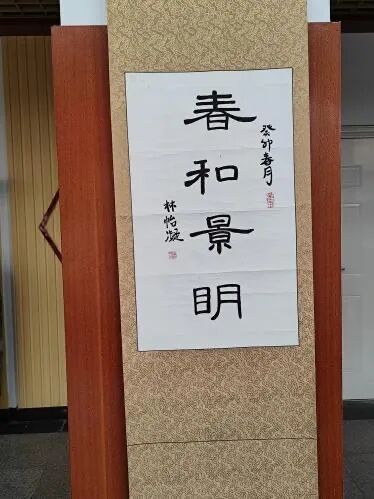 癸卯春月
春和景明
林怡凝